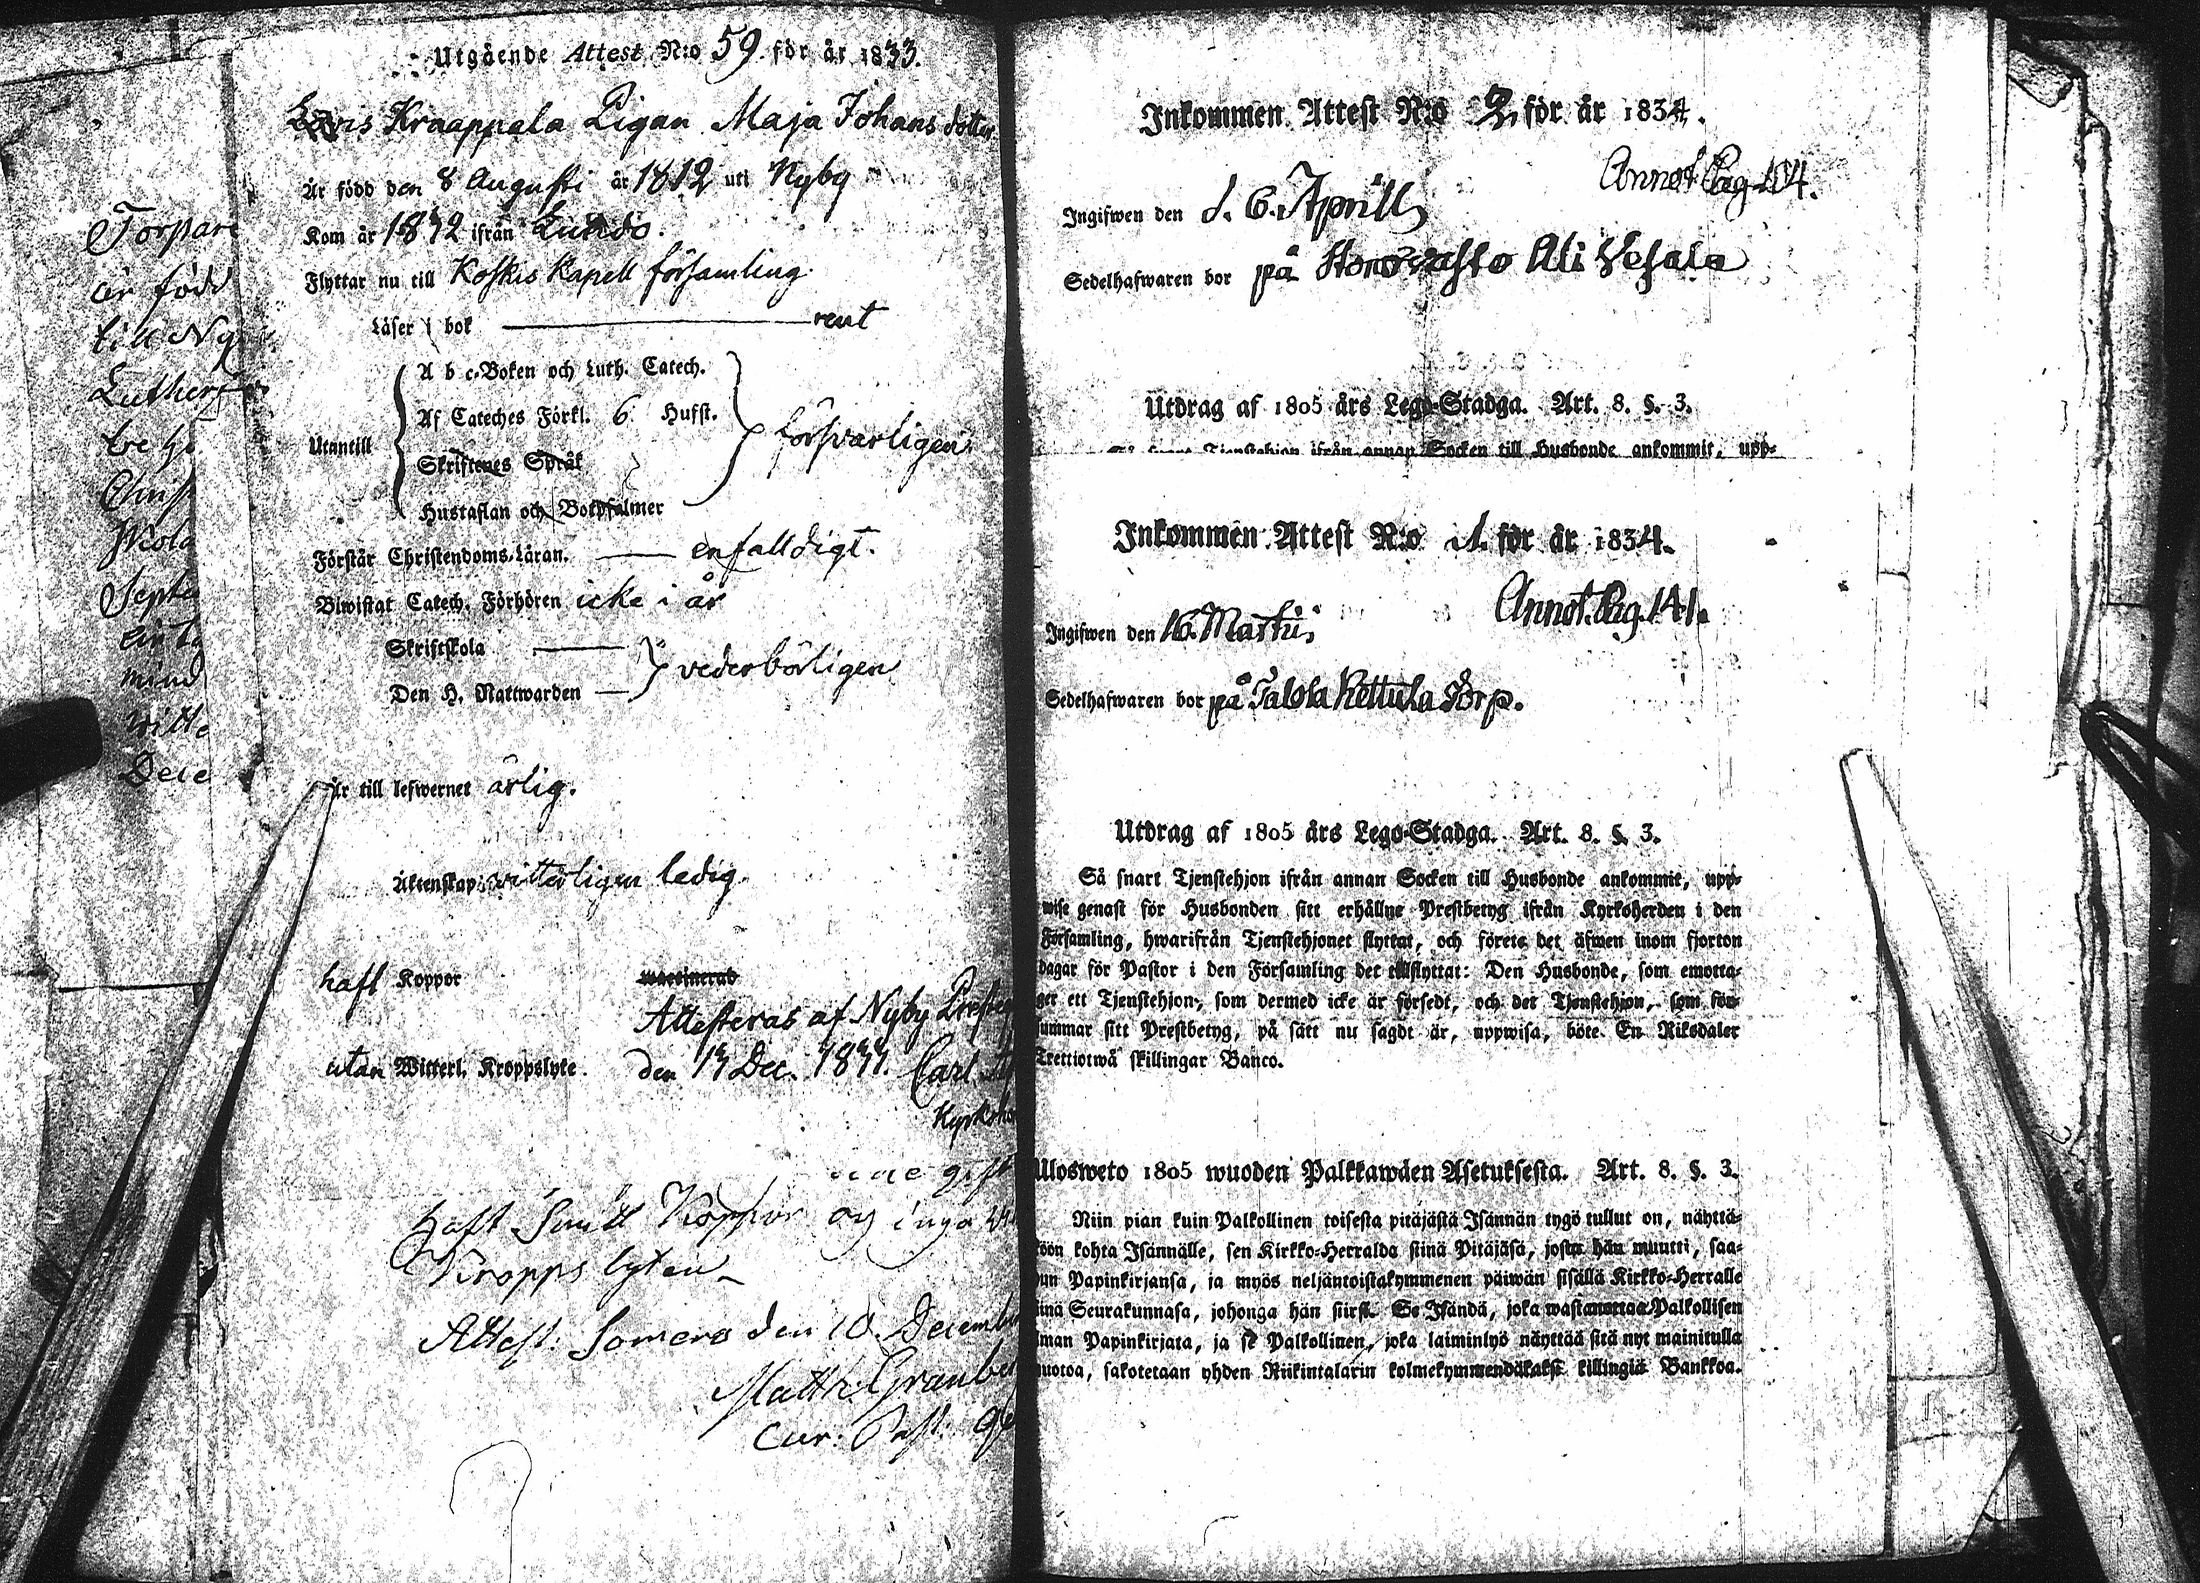 Utgående Attest N:o 59 för år 1833.
Kraappala Pigan Maja Johansdotter
Är född den 8 Augusti år 1812 uti Nyby
Kom år 1832 ifrån Lundo.
Flyttar nu till Koskis Kapell församling.
Läser i bok rent
Utantill
A b c-Boken och Luth. Catech.
Af Cateches Förkl. 6 Hufst.
Skriftenes Språk
Hustaflan och Botpsalmer
försvarligen
Förstår Christendoms-Läran. enfalldigt.
Biwistat Catech. Förhören icke i år
Skriftskola
Den H. Nattwarden
vederbörligen
Är till lefwernet ärlig.
Äktenskap: vitterligen ledig.
haft Koppor waccinerad
Attesteras af Nyby
utan Witterl. Kroppslyte. den 13 Dec. 1833. Carl
Torpare
är född
till Ny
Luther
tre
Christ
Septe
mind
vitte
Dece
gift
haft Koppor og inga
Kroppslyten
Attest: Somero den 10. December
Matth: Granberg
Cur: Past:
Inkommen Attest N:o 2 för år 1834.
Annot. Pag. 104.
Ingifwen den d. 6. Aprill
Sedelhafwaren bor på Ali Vesala
Utdrag af 1805 års Lego-Stadga. Art. 8. §. 3.
Så snart Tjenstehjon ifrån annan Socken till Husbonde ankommit, upp-
Inkommen Attest N:o 1. för år 1834.
Annot. Pag. 141.
Ingifwen den 16. Martii
Sedelhafwaren bor på Talola Kettula Torp.
Utdrag af 1805 års Lego-Stadga. Art. 8. §. 3.
Så snart Tjenstehjon ifrån annan Socken till Husbonde ankommit, upp-
wise genast för Husbonden sitt erhållne Prestbetyg ifrån Kyrkoherden i den
Församling, hwarifrån Tjenstehjonet flyttat, och förete det äfwen inom fjorton
dagar för Pastor i den Församling det tillflyttat: Den Husbonde, som emotta-
ger ett Tjenstehjon, som dermed icke är försedt, och det Tjenstehjon, som för-
summar sitt Prestbetyg, på sätt nu sagdt är, uppwisa, böte En Riksdaler
Trettiotwå skillingar Banco.
Ulosweto 1805 wuoden Palkkawäen Asetuksesta. Art. 8. §. 3.
Niin pian kuin Palkollinen toisesta pitäjästä Isännän tygö tullut on, näyttä-
köön kohta Isännälle, sen Kirkko-Herralda siinä Pitäjäsä, josta hän muutti, saa-
un Papinkirjansa, ja myös neljäntoistakymmenen päiwän sisällä Kirkko-Herralle
iinä Seurakunnasa, johonga hän siirsi. Se Isändä, joka wastanottaa Palkollisen
lman Papinkirjata, ja se Palkollinen, joka laiminlyö näyttää sitä nyt mainitulla
muotoa, sakotetaan yhden Riikintalarin kolmekymmendäkaksi killingiä Bankkoa.